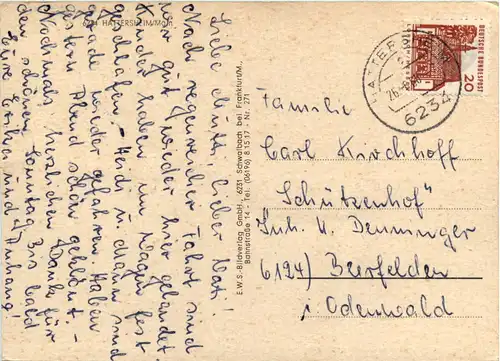 6234 HATTERSHEIM/Main
Liebe Mutti, Lieber Vati!
Nach regenreicher Fahrt sind
wir gut wieder hier gelandet
Kinder haben im Wagen fest
geschlafen - Heidi u. Mann sind
gerade wieder gefahren. Haben
gestern Abend schön gefeiert -
Nochmals herzlichen Dank für
den schönen Sonntag. Bis bald
Eure Erika und Anhang!
E.W.S.-Bildverlag GmbH., 6231 Schwalbach bei Frankfurt/M.,
Bahnstraße 14 · Tel. (06196) 8 15 17 Nr. 271
DEUTSCHE BUNDESPOST
20
HATTERSHEIM
6234
Familie
Carl Kirchhoff
„Schützenhof"
Inh. H. Denninger
6124) Beerfelden
i/ Odenwald